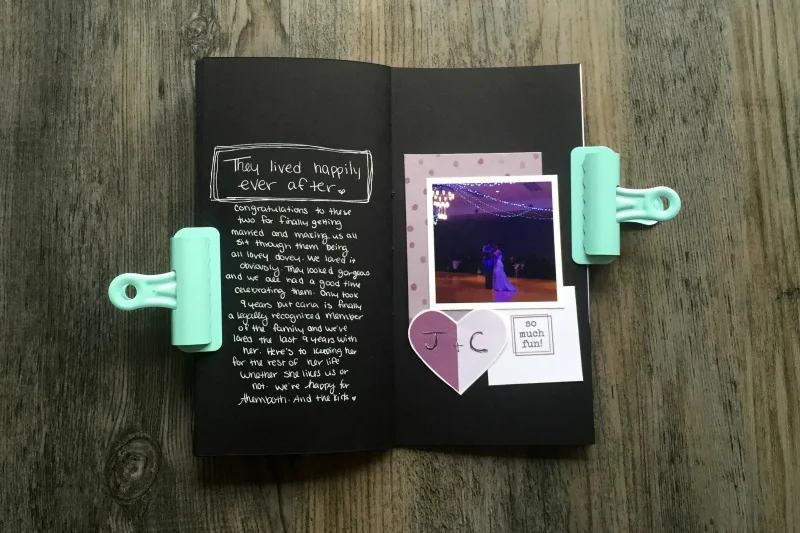 They lived happily
ever after
congratulations to these
two for finally getting
married and making us all
sit through them being
all lovey dovey. We loved it
obviously. They looked gorgeous
and we all had a good time
celebrating them. Only took
9 years but cana is finally
a legally recognized member
of the family and we've
loved the last 9 years with
her. Here's to keeping her
for the rest of her life
whether she likes us or
not. We're happy for
them both. And the kids
J + C
so
much
fun!